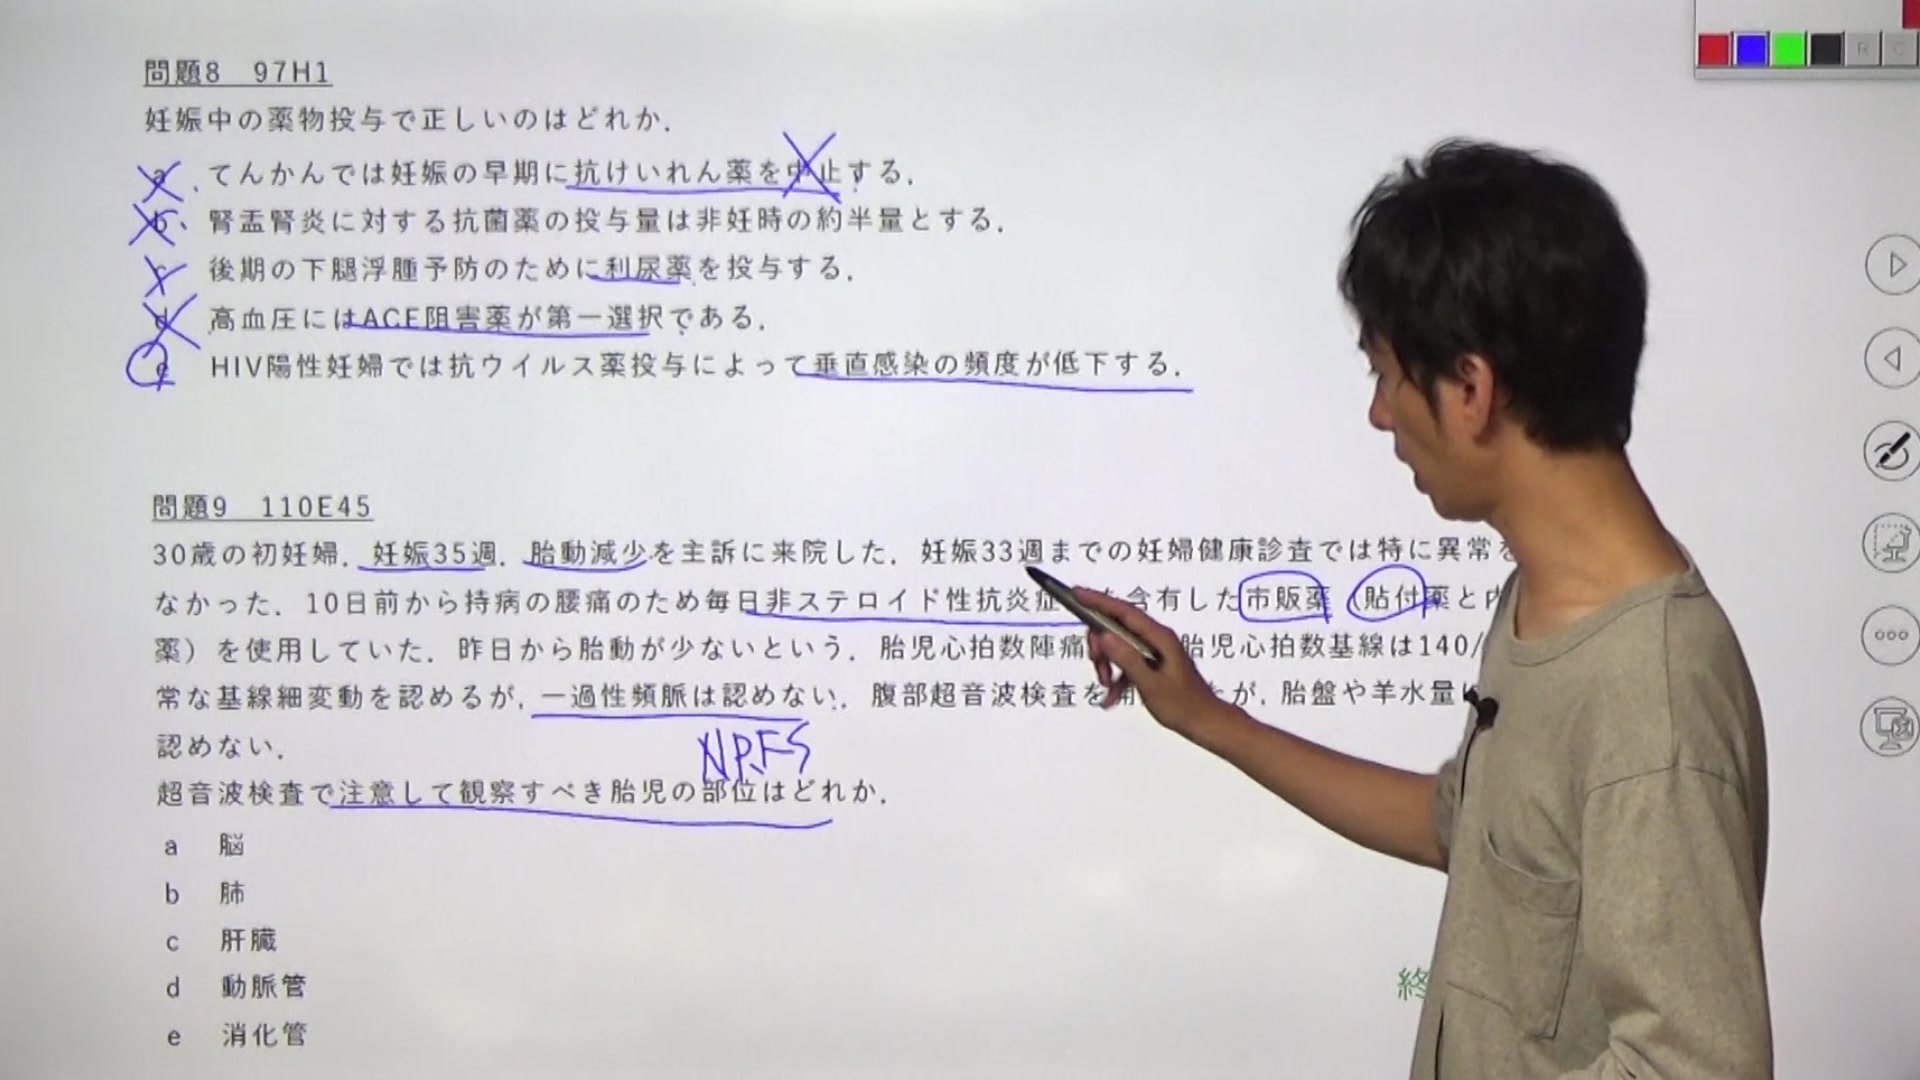 問題8 97H1
妊娠中の薬物投与で正しいのはどれか.
a. てんかんでは妊娠の早期に抗けいれん薬を中止する.
b. 腎盂腎炎に対する抗菌薬の投与量は非妊時の約半量とする.
c 後期の下腿浮腫予防のために利尿薬を投与する.
d 高血圧にはACE阻害薬が第一選択である.
e HIV陽性妊婦では抗ウイルス薬投与によって垂直感染の頻度が低下する.
問題9 110E45
30歳の初妊婦. 妊娠35週. 胎動減少を主訴に来院した. 妊娠33週までの妊婦健康診査では特に異常を
なかった. 10日前から持病の腰痛のため毎日非ステロイド性抗炎症 を含有した市販薬 (貼付薬と内
薬) を使用していた. 昨日から胎動が少ないという. 胎児心拍数陣痛 胎児心拍数基線は140/
常な基線細変動を認めるが, 一過性頻脈は認めない. 腹部超音波検査を開 たが, 胎盤や羊水量に
認めない.
NRFS
超音波検査で注意して観察すべき胎児の部位はどれか.
a 脳
b 肺
c 肝臓
d 動脈管
e 消化管
終